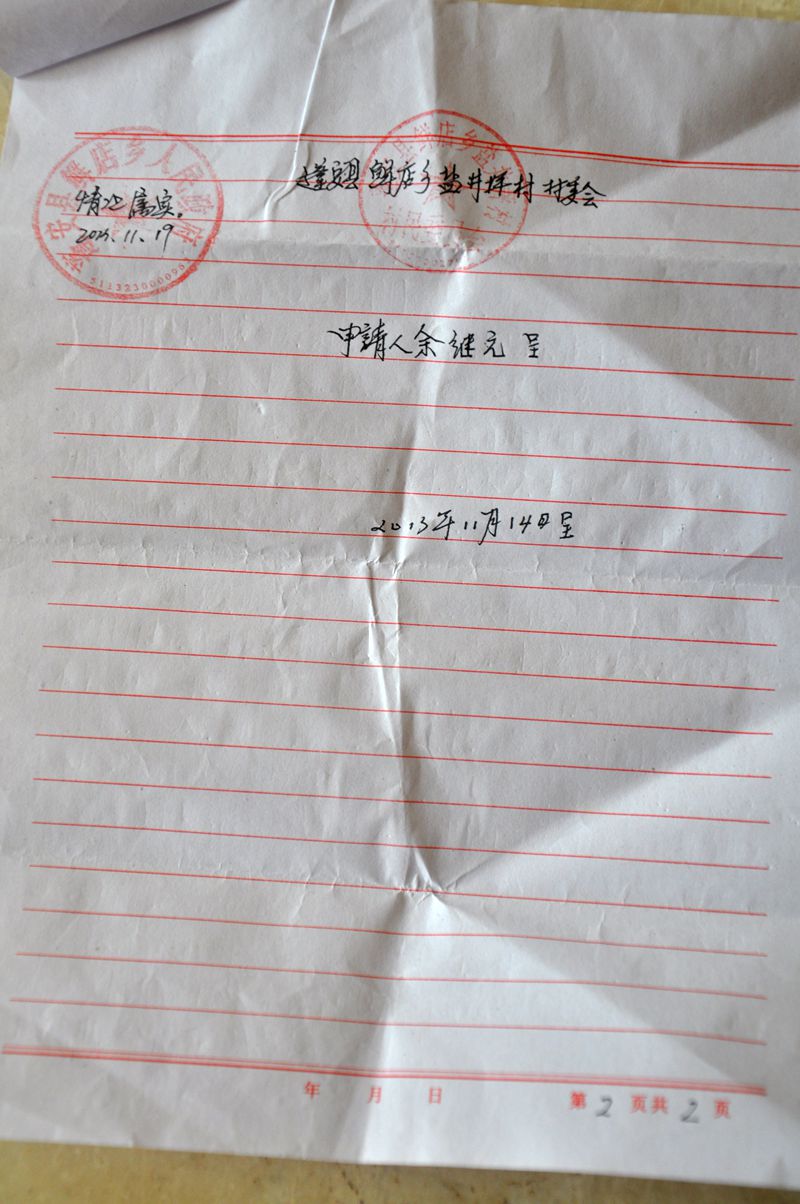 蓬安县鲜店乡盐井坪村村委会
蓬安县鲜店乡人民政府
情况属实。
11.19
5113230000
县鲜店乡盐井
申請人余继元 呈
2013年11月14日呈
年 月 日 第2页共2页